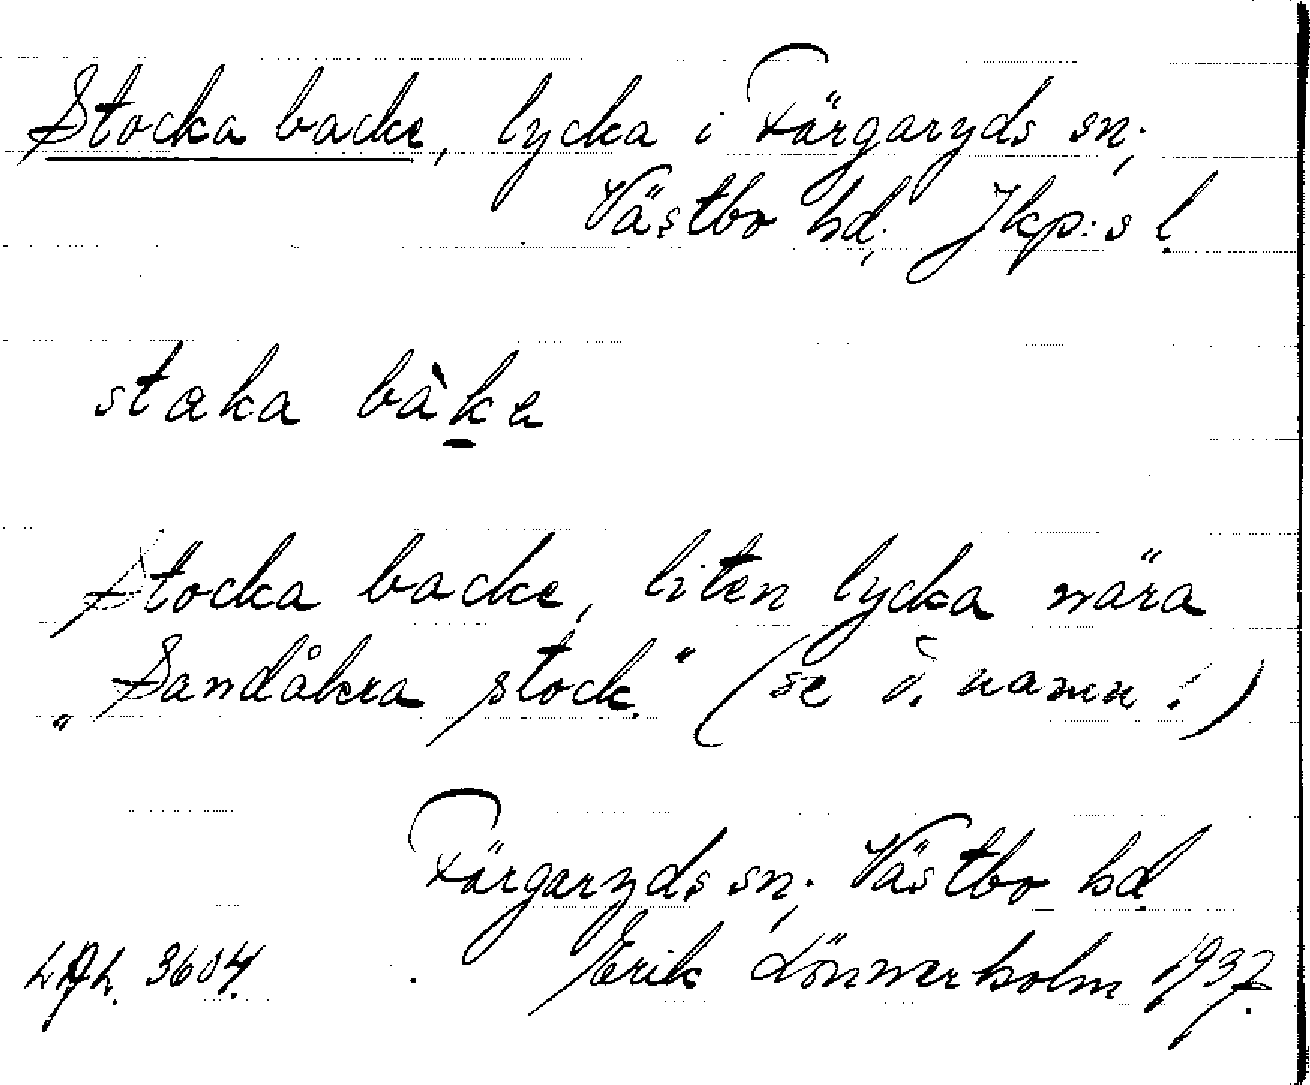 Stocka backe, lycka i Färgaryds sn;
Västbo hd; Jkp:s l.
staka bàke
Stocka backe, liten lycka nära
"Sandåkra stock." (se d. namn!)
Färgaryds sn; Västbo hd.
Erik Lönnerholm 1937.
3604.